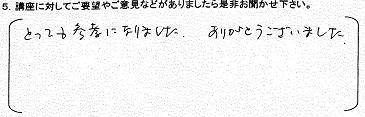 5. 講座に対してご要望やご意見などがありましたら是非お聞かせ下さい。
とっても参考になりました. ありがとうございました